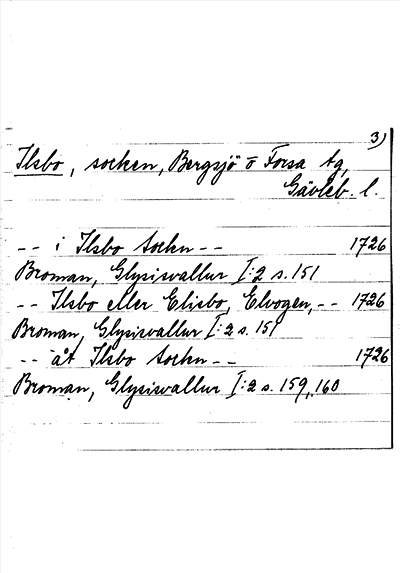 3)
Ilsbo, socken, Bergsjö o Forsa tg,
Gävleb. l.
-- i Ilsbo Sockn -- 1726
Broman, Glysisvallur I:2 s. 151
-- Ilsbo eller Elisbo, Elvogen, -- 1726
Broman, Glysisvallur I:2 s. 151
-- åt Ilsbo Sockn -- 1726
Broman, Glysisvallur I:2 s. 159, 160